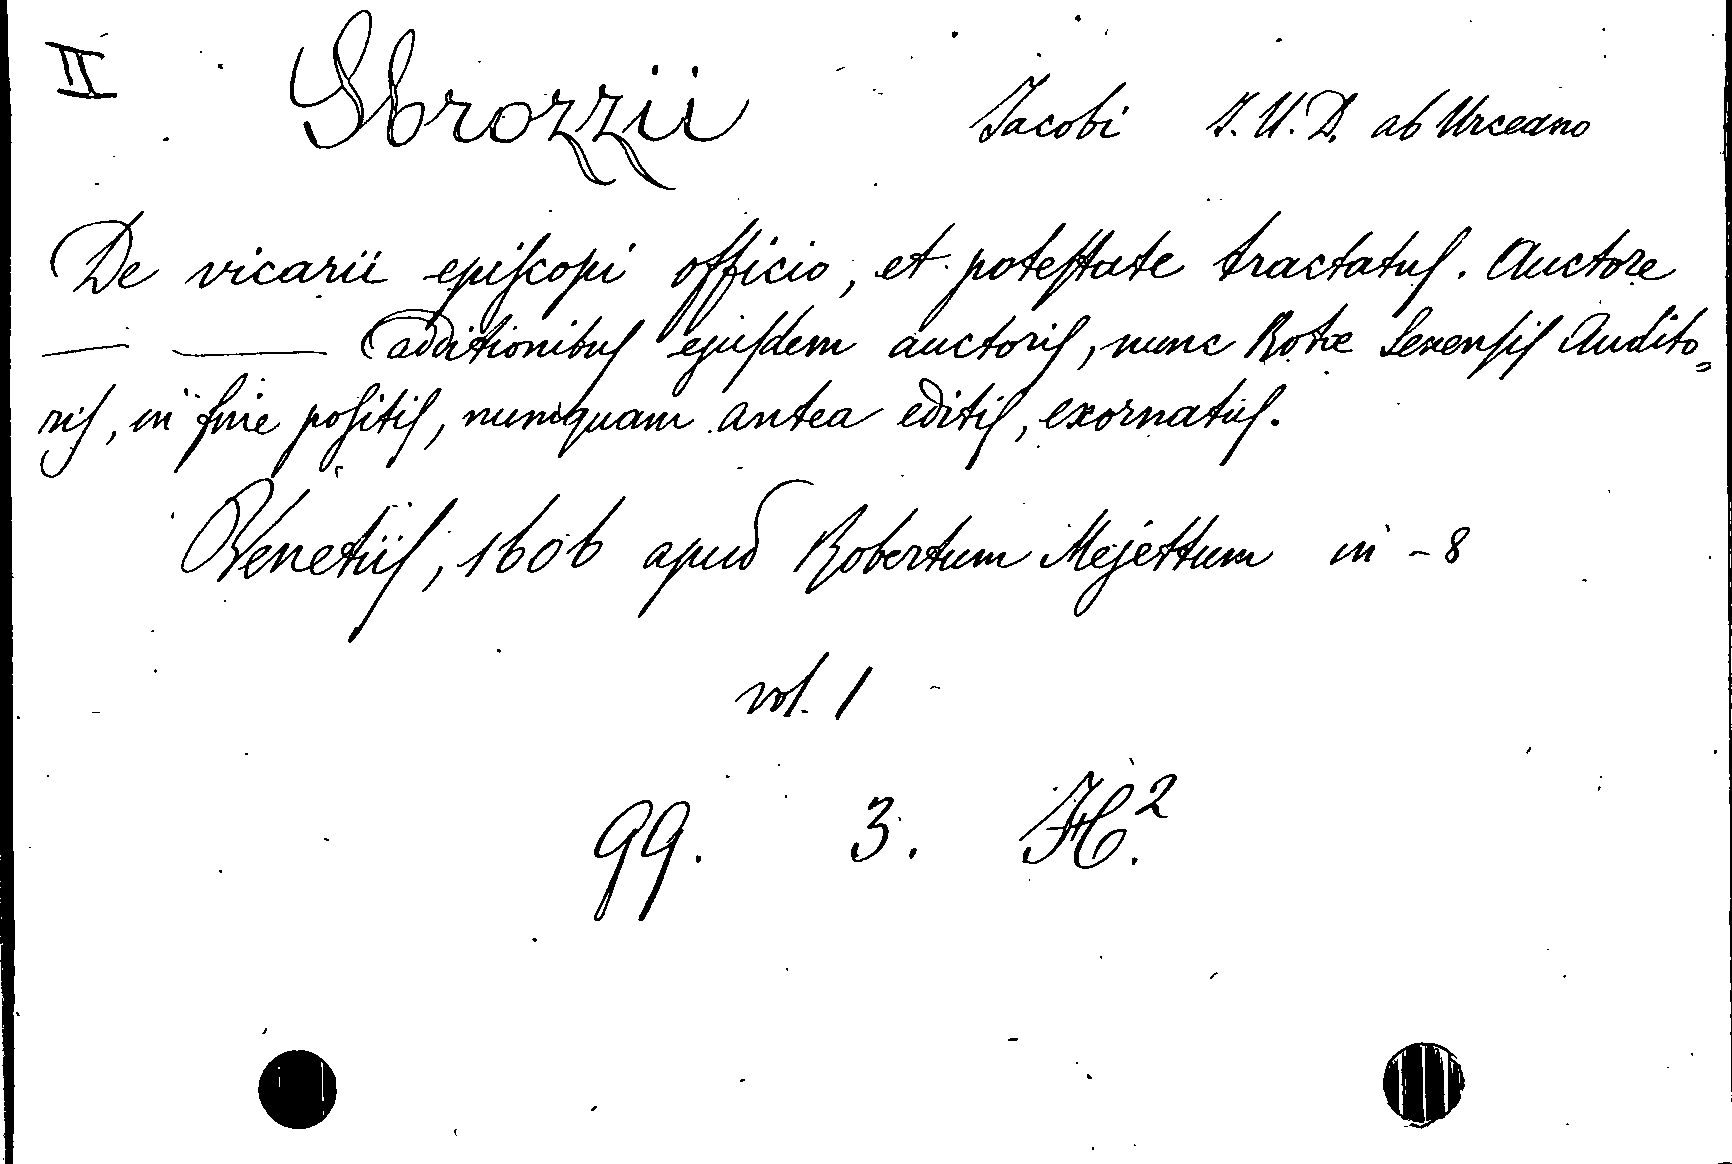 II Sbrozzii Jacobi J. U. D. ab Urceano
De vicarii epiſcopi officio, et poteſtate tractatuſ. Auctore
— — additionibuſ ejuſdem auctoriſ, nunc Rotæ Senenſiſ Audito=
riſ, in fine poſitiſ, nunquam antea editiſ, exornatuſ.
Venetiiſ, 1606 apud Robertum Mejettum in - 8
vol. 1
99. 3. H.²